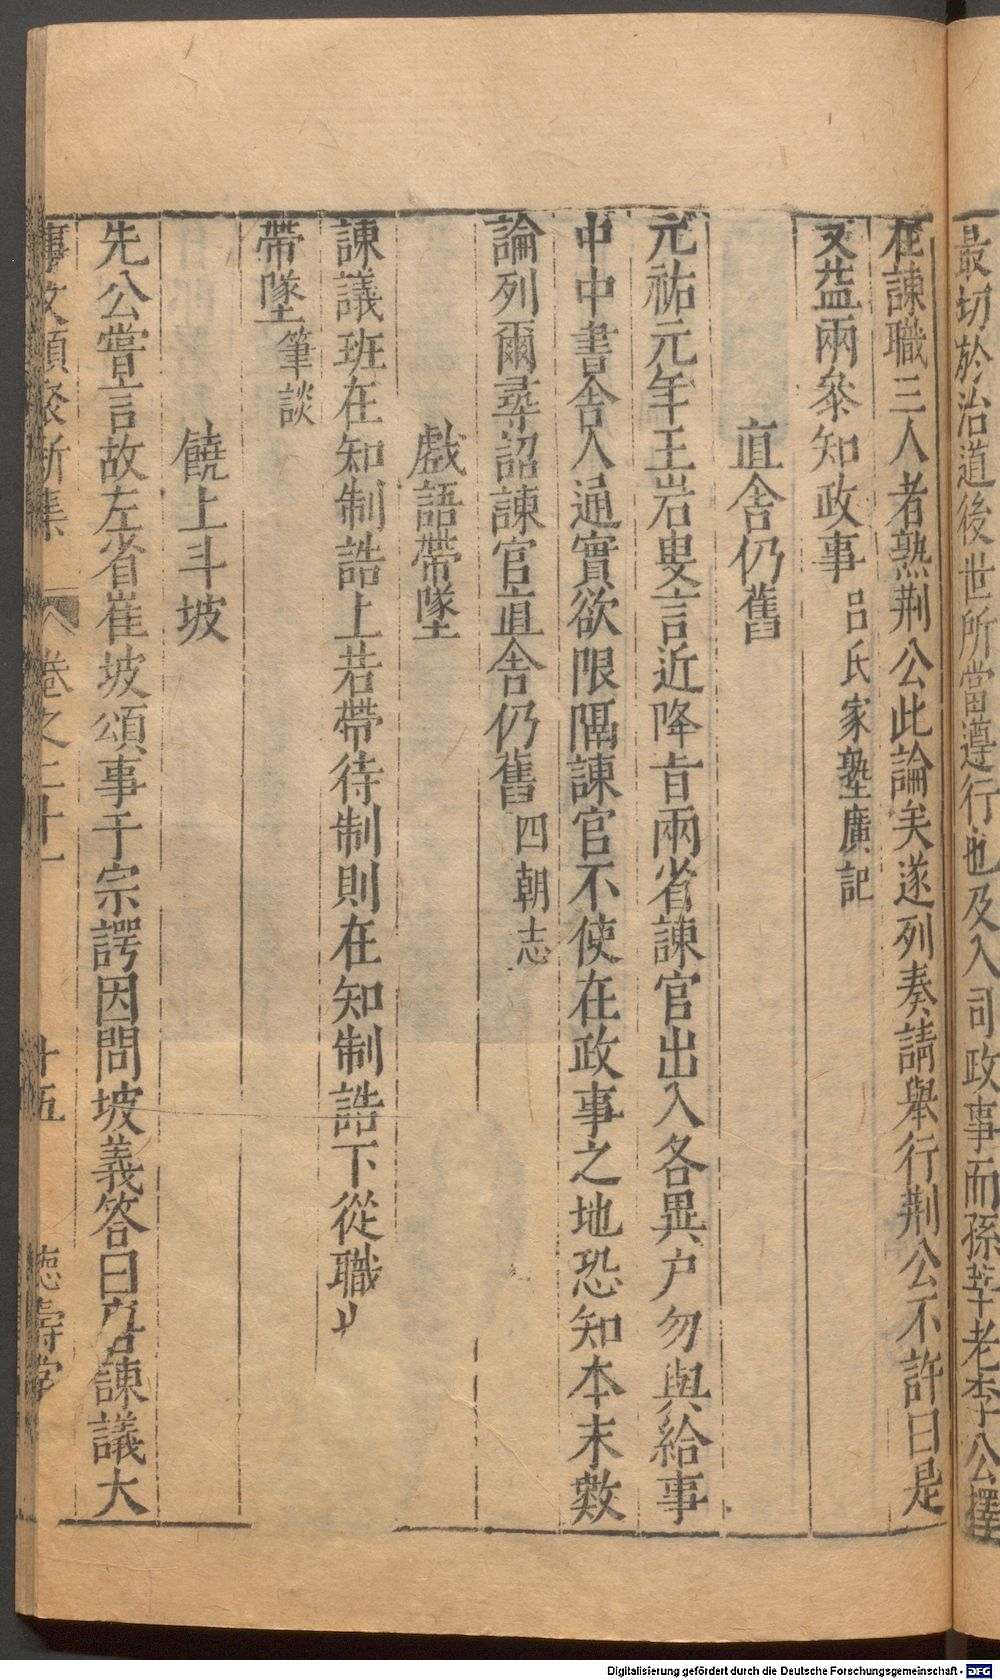 最切於治道後世所當遵行也及入司政事而孫莘老李公擇
在諫職三人者熟荆公此論矣遂列奏請舉行荆公不許曰是
又益兩叅知政事 吕氏家塾廣記
直舍仍舊
元祐元年王岩叟言近降旨兩省諫官出入各異户勿與給事
中中書舍人通實欲限隔諫官不使在政事之地恐知本末數
論列爾尋詔諫官直舍仍舊 四朝志
戲語帶墜
諫議班在知制誥上若帶待制則在知制誥下從職
帶墜 筆談
饒上斗坡
先公嘗言故左省崔坡頌事于宗諤因問坡義答曰諫議大
事文類聚新集 卷之二十一 十五
Digitalisierung gefördert durch die Deutsche Forschungsgemeinschaft - DFG